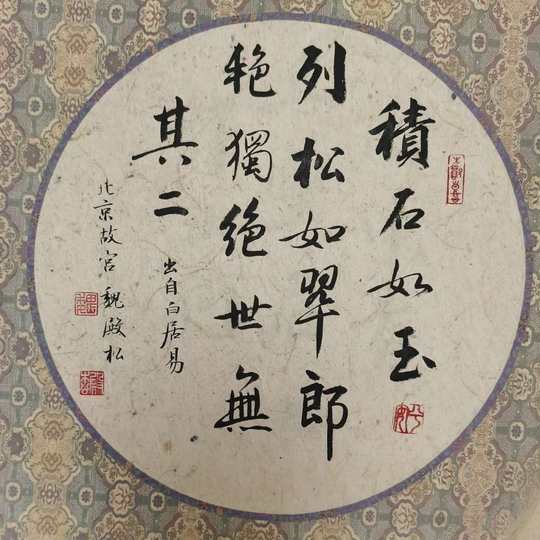 積石如玉
列松如翠郎
艳獨絶世無
其二
出自白居易
北京故宮魏殿松